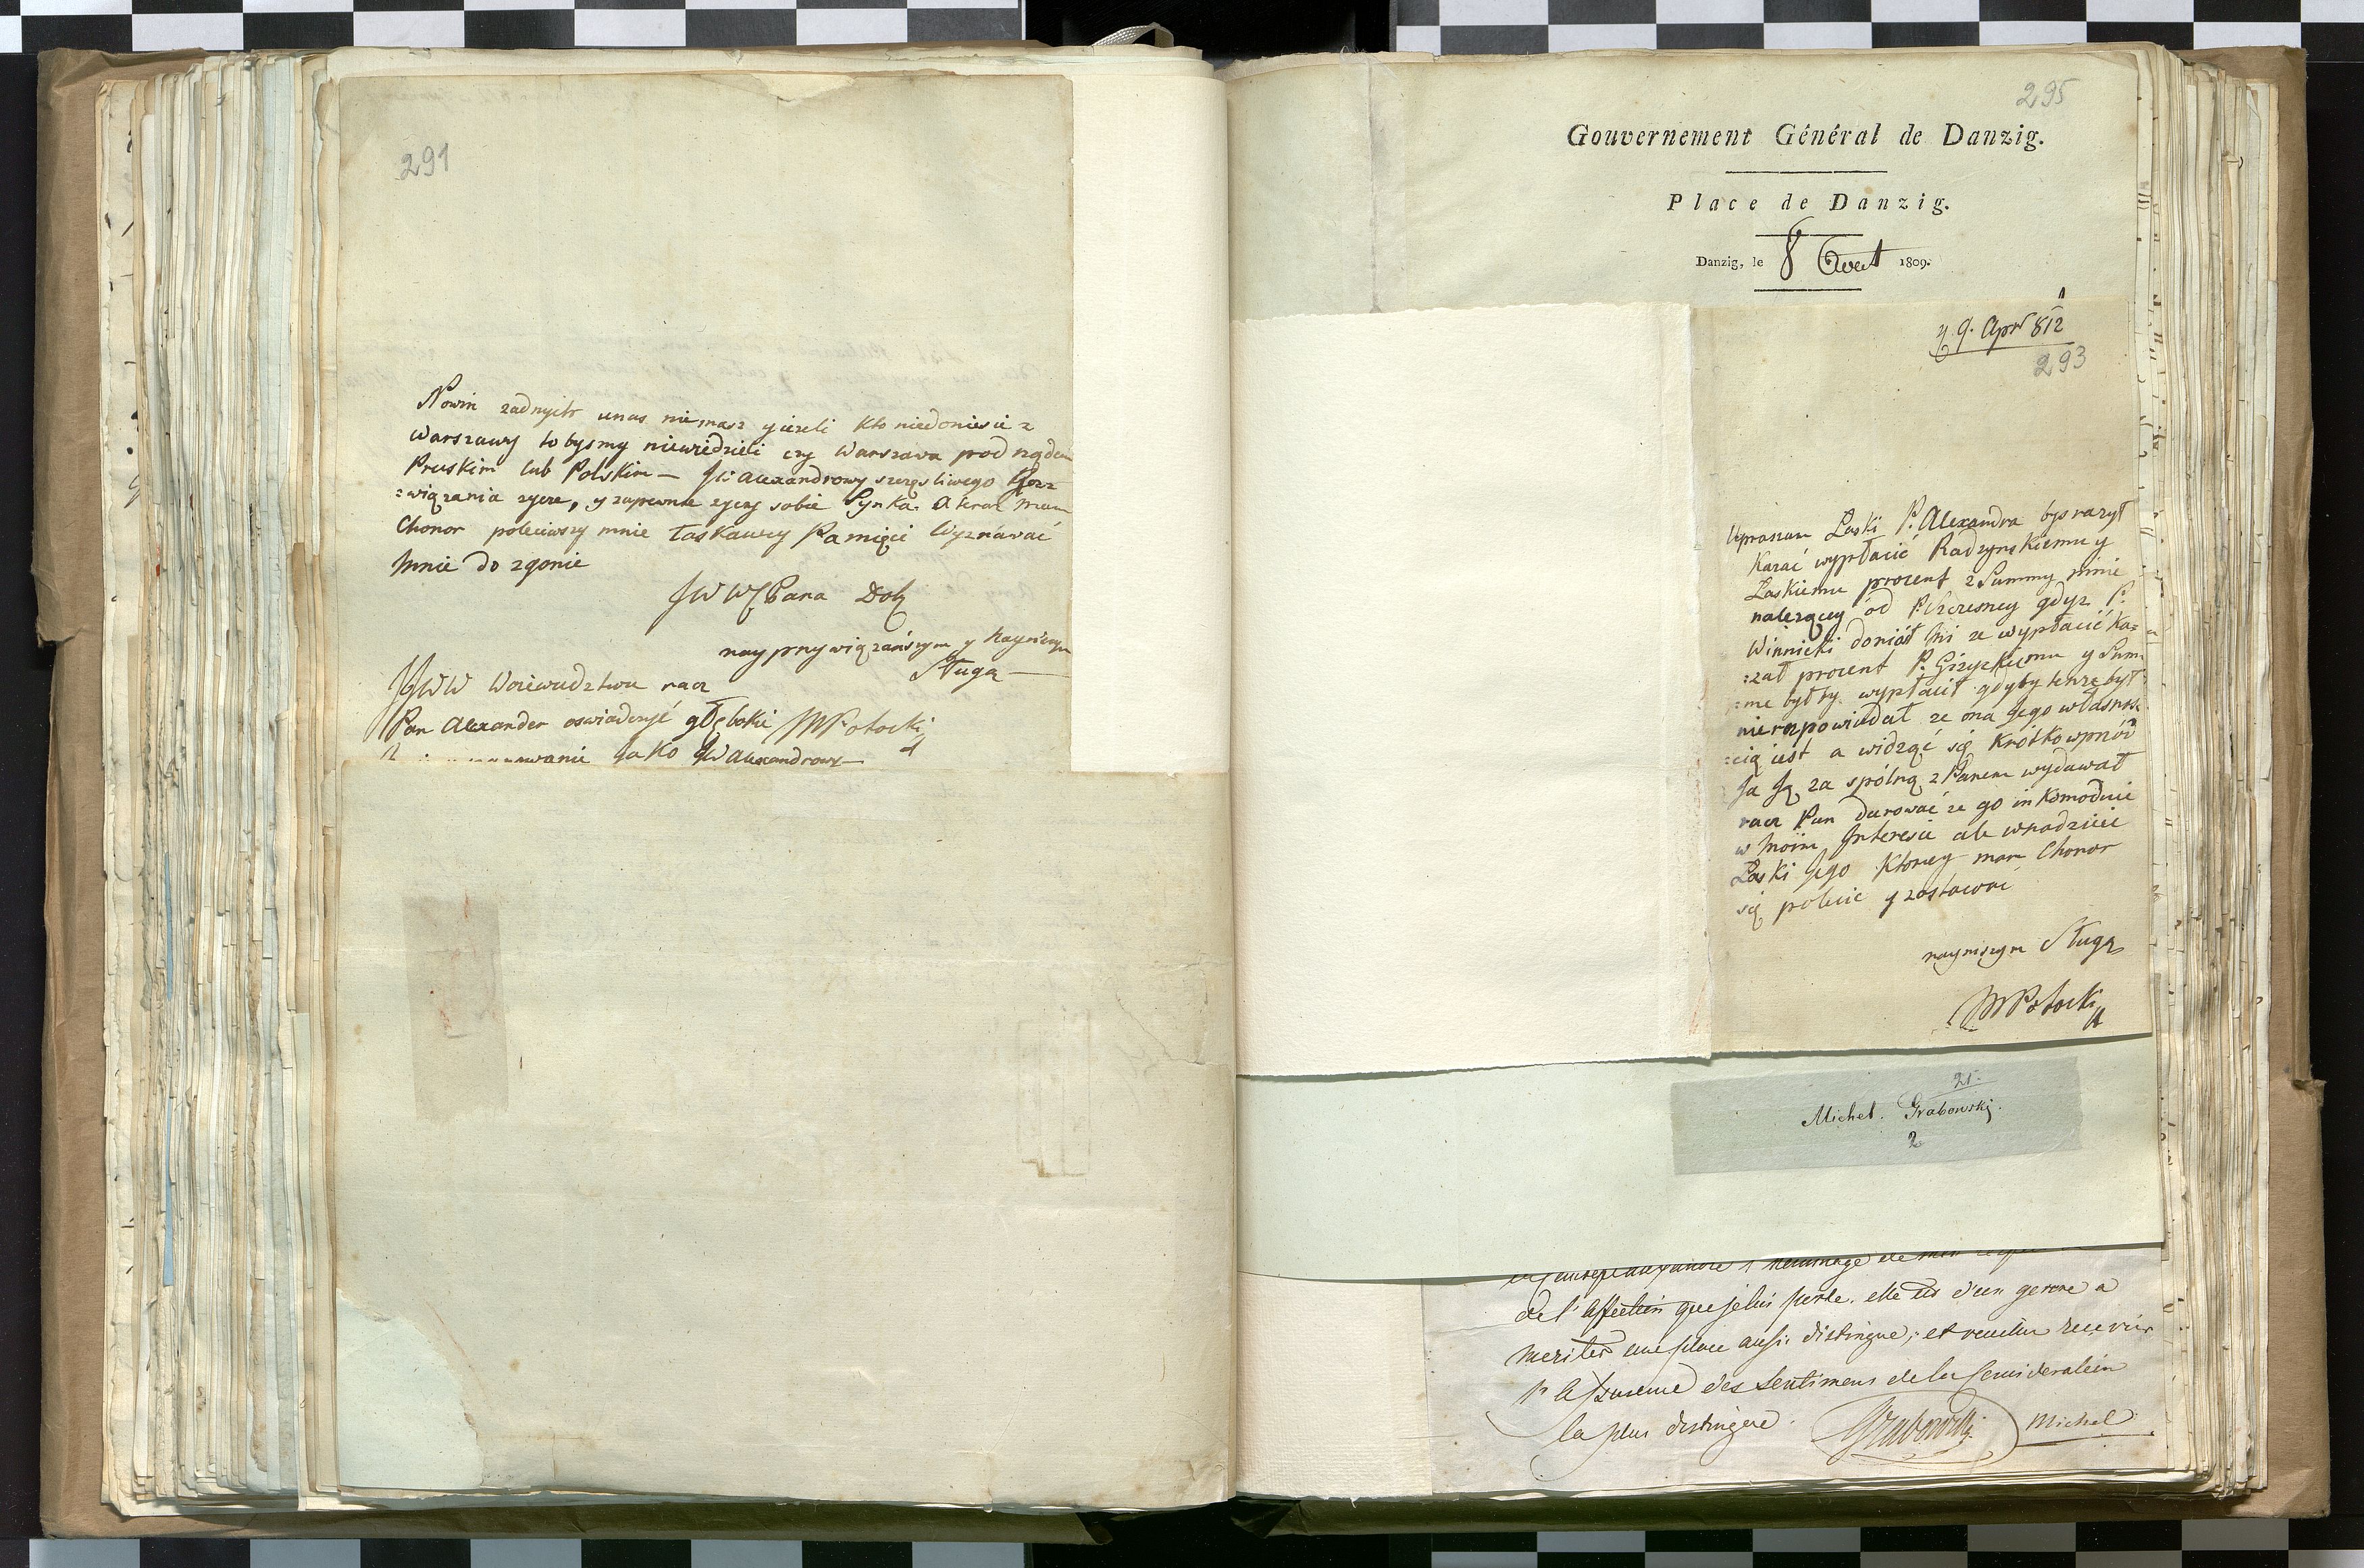 291
Nowin zadnych unas niemasz y ieżeli kto niedoniesie z
Warszawy to bysmy niewiedzieli czy Warszawa pod rządem
Pruskim lub Polskim — Alexandrowy szczęsliwego
:wiązania zycze, y zapewne zyczy sobie Synka. A teraz mam
Chonor poleciwszy mnie łaskawey Pamięci Wyznawać
mnie do zgonie
Pana Dob
nayprzywiązańszym y nayniszym
Sługą —
Woiewodztwu racz
Pan Alexander oswiadczyć głębokie MPotocki
iako Alexandrowy —
295
Gouvernement Général de Danzig.
Place de Danzig.
Danzig, le 8 Aout 1809.
9. Apr 812
293
Upraszam Laski P. Alexandra bys raczył
Kazać wypłacić Radzynskiemu y
Laskiemu procent z Summy mnie
nalezącey od P. Szczesney gdyz P.
Winnicki doniósł mi ze wypłacić ka=
:zał procent P. Gizyckiemu y Sum
:me byłby wypłacił gdyby tenze był
nierozpowiadał ze ona Jego własnos
:cią iest a widząć się krótko wprzód
Ja Ją za spólną z Panem wydawał
racz Pan darować ze go inkomoduie
w moim Interesie ale wnadziei
Laski Jego Ktorey mam Chonor
się polecić y zostawać
nayniszym Sługą
MPotocki
21.
Michel. Grabowski.
2
hommage de mon
de l'affection que je lui porte. elle est d'un genre a
meriter une place aussi distingue; et veuillez recevoir
l'assurance des sentimens de la Consideration
la plus distingue.
Grabowski Michel